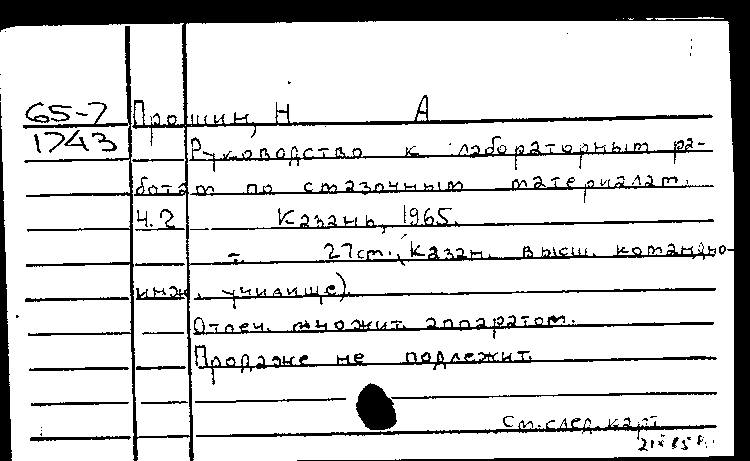 65-7 Прошин, Н А
1743 Руководство к лабораторным ра-
ботам по смазочным материалам.
Ч. 2 Казань, 1965.
- 27см., (Казан. высш. командно-
инж. училище).
Отпеч. множит. аппаратом.
Продаже не подлежит.
См. след. карт.